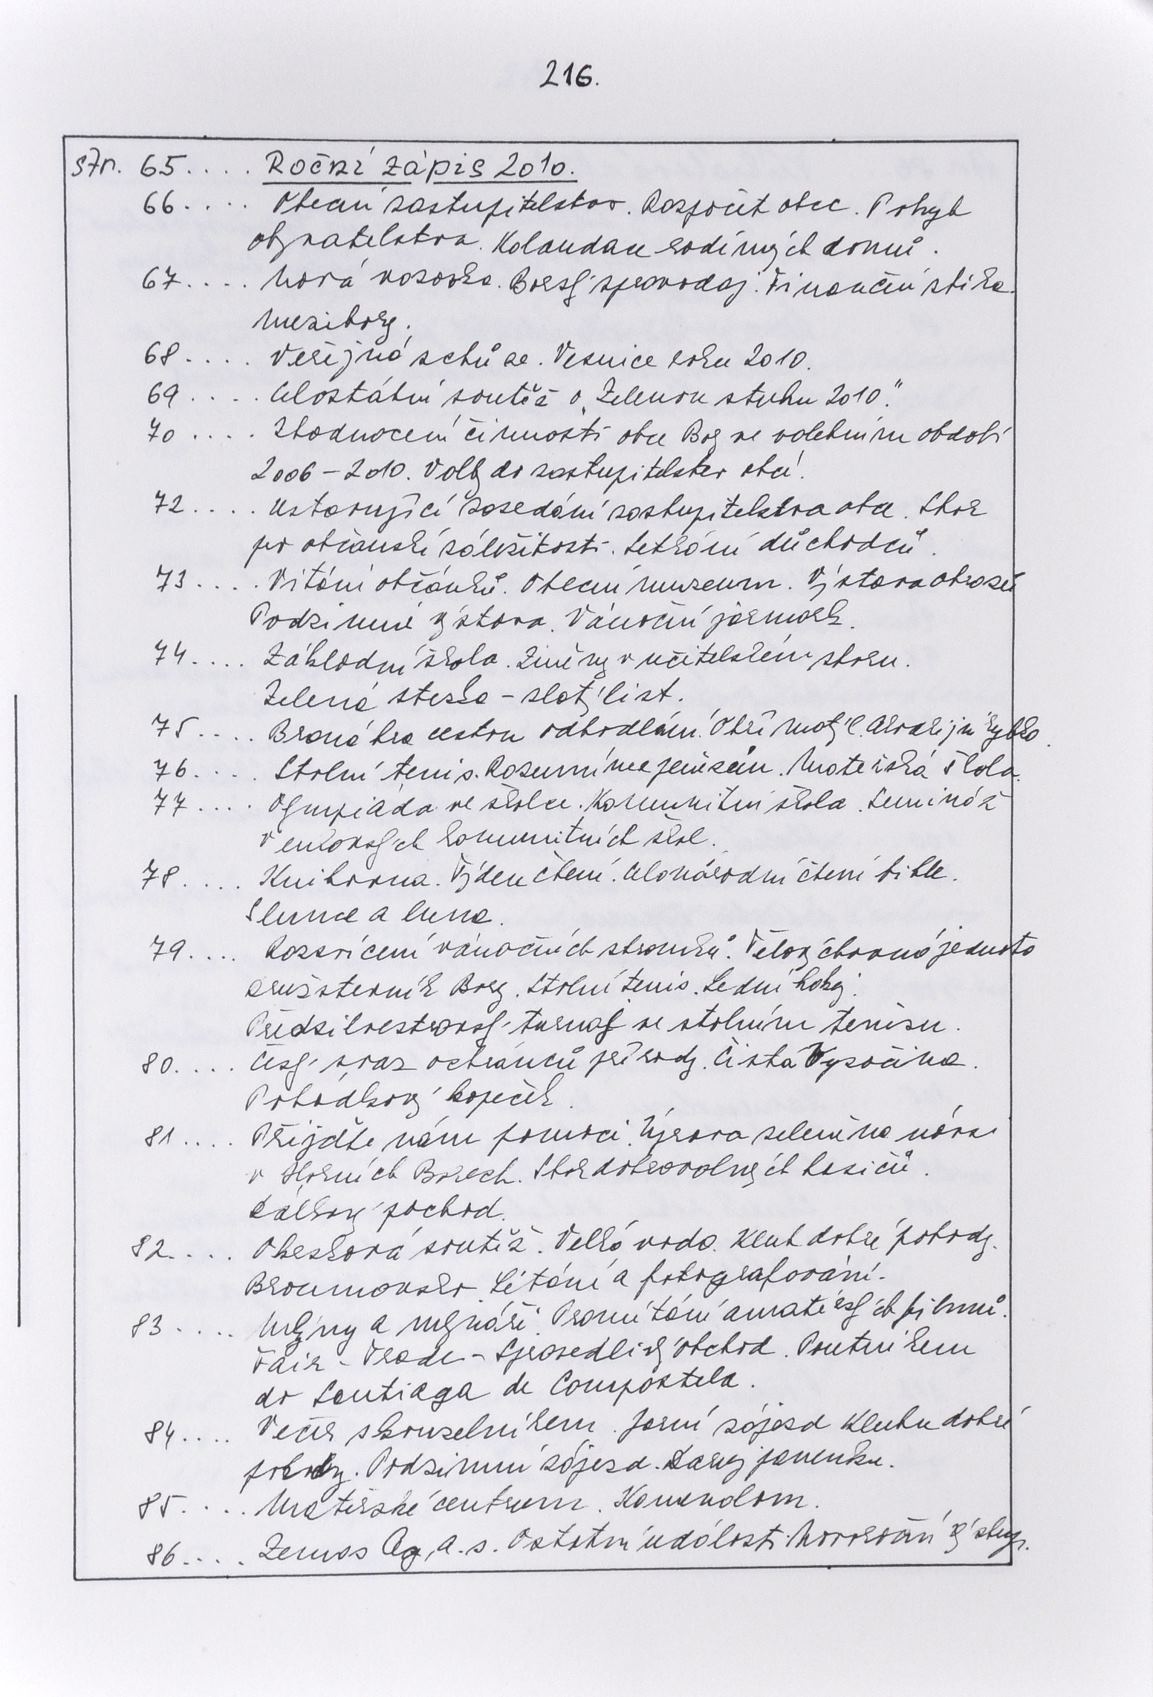 216.
str. 65.... Roční zápis 2010.
66.... Obecní zastupitelstvo. Rozpočet obce. Pohyb
obyvatelstva. Kolaudace rodinných domů.
67.... Nová vozovka. Borský zpravodaj. Finanční sbírka
Mezibory.
68.... Veřejná schůze. Vesnice roku 2010.
69.... Celostátní soutěž o „Zelenou stuhu 2010."
70.... Zhodnocení činnosti obce Bory ve volebním období
2006–2010. Volby do zastupitelstev obcí.
72.... Ustavující zasedání zastupitelstva obce. Sbor
pro občanské záležitosti. Setkání důchodců.
73.... Vítání občánků. Obecní muzeum. Výstava obrazů
Podzimní výstava. Vánoční jarmark.
74.... Základní škola. Změny v učitelském sboru.
Zelená stezka – zlatý list.
75.... Branná hra cestou odhodlání. Obří motýl. Čarodějné rybko.
76.... Stolní tenis. Rozumíme penězům. Mateřská škola.
77.... Olympiáda ve školce. Komunitní škola. Seminář
venkovských komunitních škol.
78.... Knihovna. Týden čtení. Celonárodní čtení bible.
Slunce a luna.
79.... Rozsvícení vánočních stromků. Tělovýchovná jednota
Družstevník Bory. Stolní tenis. Lední hokej.
Předsilvestrovský turnaj ve stolním tenisu.
80.... Český svaz ochránců přírody. Čistá Vysočina.
Pohádkový kopeček.
81.... Přijďte nám pomoci. Úprava zeleně na návsi
v Horních Borech. Sbor dobrovolných hasičů.
Dálkový pochod.
82.... Okrsková soutěž. Velká voda. Klub dobré pohody.
Broumovsko. Létání a fotografování.
83.... Mlýny a mlynáři. Promítání amatérských filmů.
Fair – Trade – Spravedlivý obchod. Poutníkem
do Santiaga de Compostela.
84.... Večer s kouzelníkem. Jarní zájezd Klubu dobré
pohody. Podzimní zájezd. Daruj panenku.
85.... Mateřské centrum. Kamenolom.
86.... Zemas Ag, a.s. Ostatní události. Novoroční výstup.